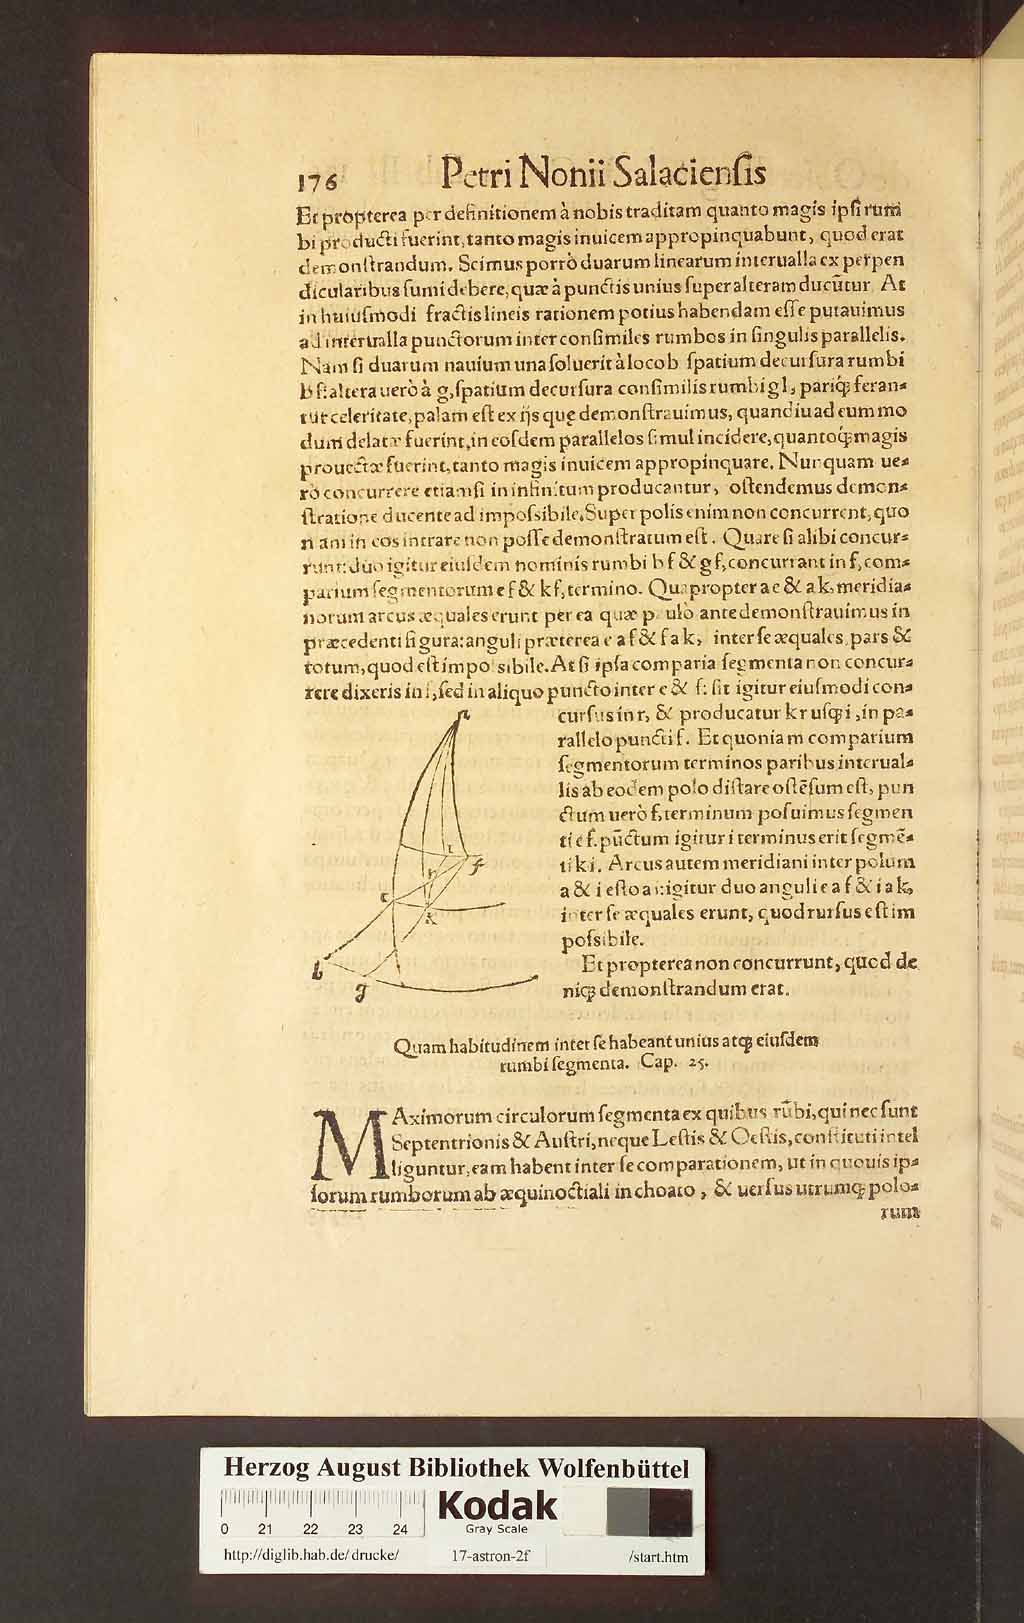 176 Petri Nonii Salaciensis
Et propterea per definitionem à nobis traditam quanto magis ipsi rum
bi producti fuerint, tanto magis inuicem appropinquabunt, quod erat
demonstrandum. Scimus porrò duarum linearum interualla ex perpen
dicularibus sumi debere, quæ à punctis unius super alteram ducūtur. At
in huiusmodi fractis lineis rationem potius habendam esse putauimus
ad interualla punctorum inter consimiles rumbos in singulis parallelis.
Nam si duarum nauium una soluerit à loco b spatium decursura rumbi
b f: altera uerò à g, spatium decursura consimilis rumbi g l, pariq́; feran-
tur celeritate, palam est ex ijs quę demonstrauimus, quandiu ad eum mo
dum delatæ fuerint, in eosdem parallelos simul incidere, quantoq́; magis
prouectæ fuerint, tanto magis inuicem appropinquare. Nunquam ue-
rò concurrere etiamsi in infinitum producantur, ostendemus demon-
stratione ducente ad impossibile. Super polis enim non concurrent, quo
niam in eos intrare non posse demonstratum est. Quare si alibi concur-
runt: duo igitur eiusdem nominis rumbi b f & g f, concurrant in f, com-
parium segmentorum e f & k f, termino. Quapropter a e & a k, meridia-
norum arcus æquales erunt per ea quæ paulò ante demonstrauimus in
præcedenti figura: anguli præterea e a f & f a k, inter se æquales, pars &
totum, quod est impossibile. At si ipsa comparia segmenta non concur-
rere dixeris in f, sed in aliquo puncto inter e & f: sit igitur eiusmodi con-
cursus in r, & producatur k r usq; i, in pa-
rallelo puncti f. Et quoniam comparium
segmentorum terminos paribus interual-
lis ab eodem polo distare ostēsum est, pun
ctum uerò f, terminum posuimus segmen
ti e f. pūctum igitur i terminus erit segmē-
ti k i. Arcus autem meridiani inter polum
a & i esto a i: igitur duo anguli e a f & i a k,
inter se æquales erunt, quod rursus est im
possibile.
Et propterea non concurrunt, quod de
niq; demonstrandum erat.
a
i
f
r
e
k
b
g
Quam habitudinem inter se habeant unius atq; eiusdem
rumbi segmenta. Cap. 25.
MAximorum circulorum segmenta ex quibus rūbi, qui nec sunt
Septentrionis & Austri, neque Lestis & Oestis, constituti intel
liguntur, eam habent inter se comparationem, ut in quouis ip-
sorum rumborum ab æquinoctiali inchoato, & uersus utrumq; polo-
rum
Herzog August Bibliothek Wolfenbüttel
0 21 22 23 24
Kodak
Gray Scale
http://diglib.hab.de/drucke/ 17-astron-2f /start.htm